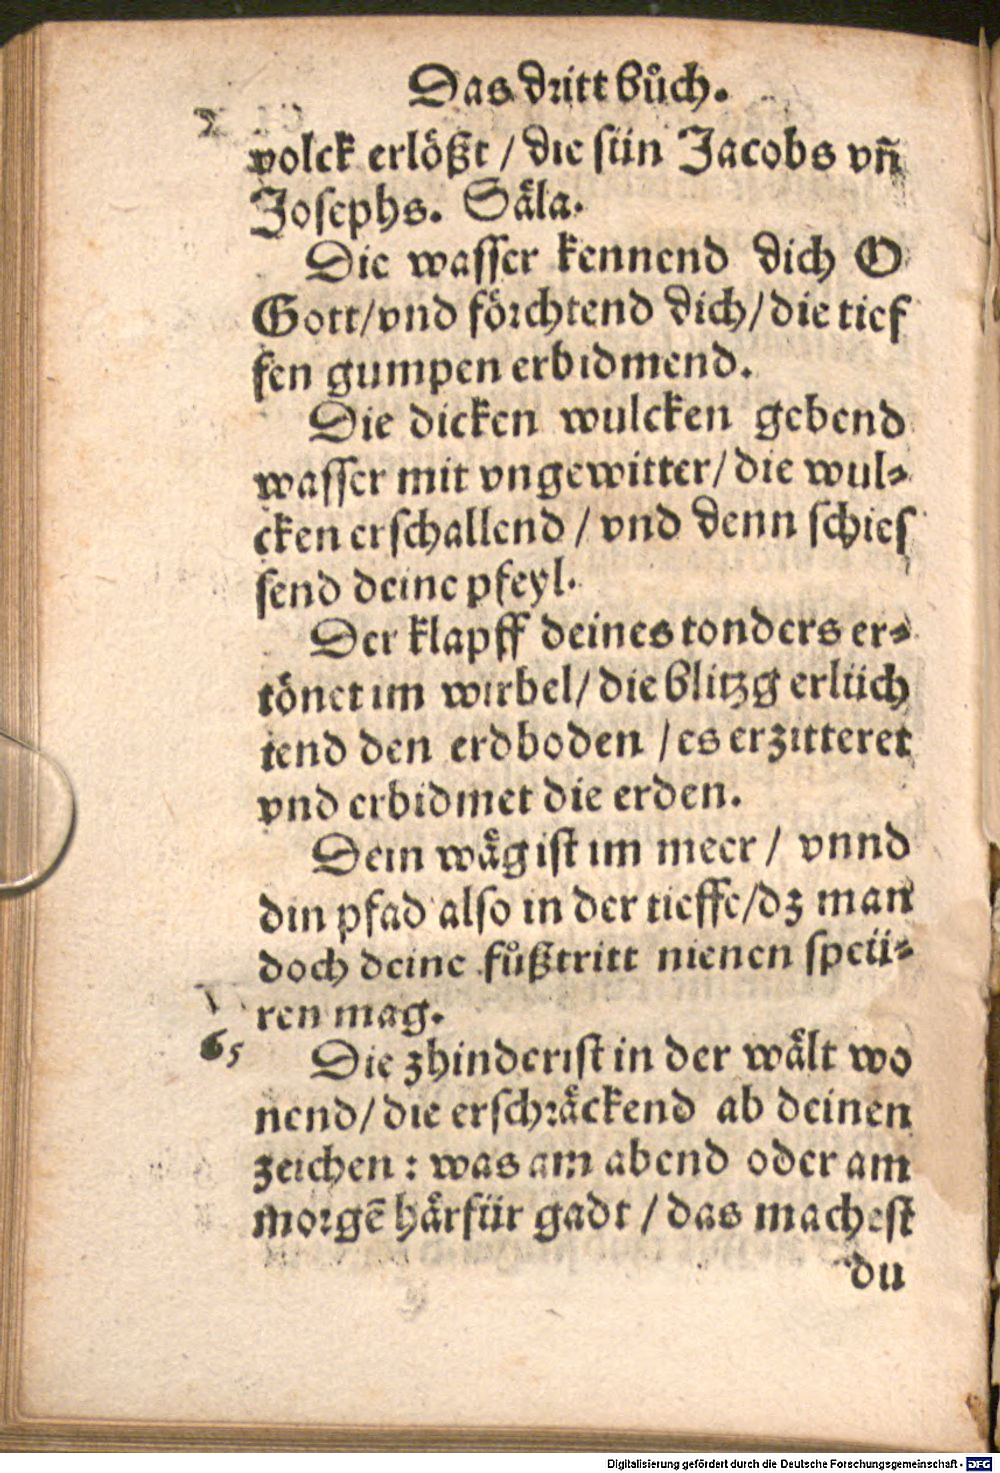 Das dritt bůch.
volck erlößt / die sün Jacobs vn̄
Josephs. Säla.
Die wasser kennend dich O
Gott/vnd förchtend dich/die tief
fen gumpen erbidmend.
Die dicken wulcken gebend
wasser mit vngewitter/die wul⸗
cken erschallend / vnd denn schies
send deine pfeyl.
Der klapff deines tonders er⸗
tönet im wirbel/die blitzg erlüch
tend den erdboden /es erzitteret
vnd erbidmet die erden.
Dein wäg ist im meer / vnnd
din pfad also in der tieffe/dz man
doch deine fůßtritt nienen speü⸗
ren mag.
65 Die zhinderist in der wält wo
nend/die erschräckend ab deinen
zeichen : was am abend oder am
morgē härfür gadt / das machest
du
Digitalisierung gefördert durch die Deutsche Forschungsgemeinschaft - DFG